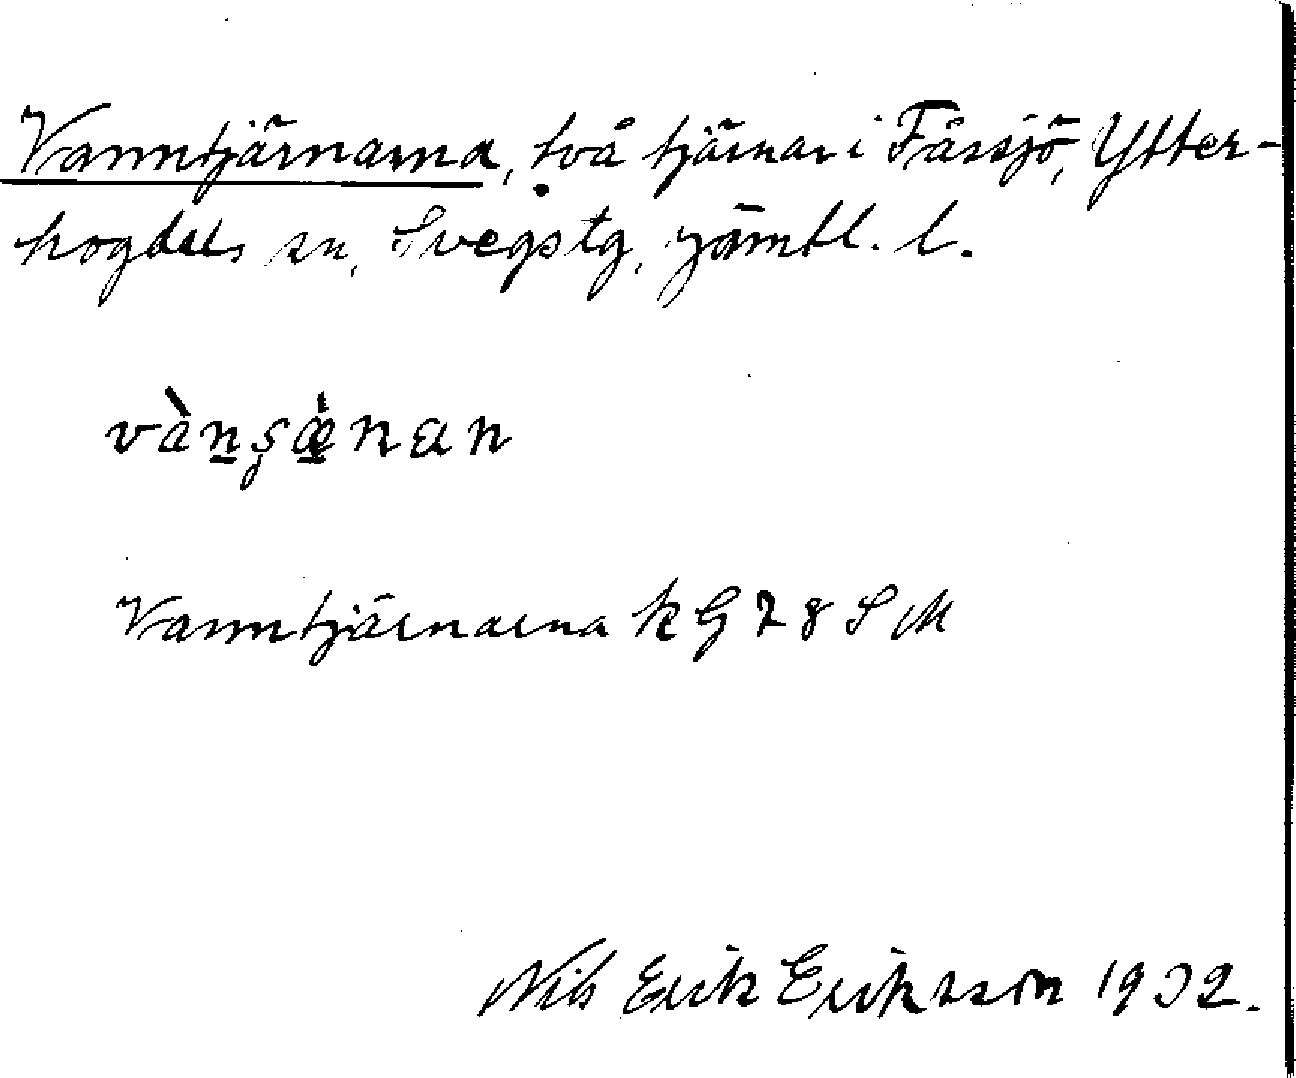 Vanntjärnarna, två tjärnar i Fåssjö, Ytter-
hogdals sn, Svegs tg, Jämtl. l.
vàn̲ṣæ̲̇nan
Vanntjärnarna k G 78 S M
Nils Erik Eriksson 1932.